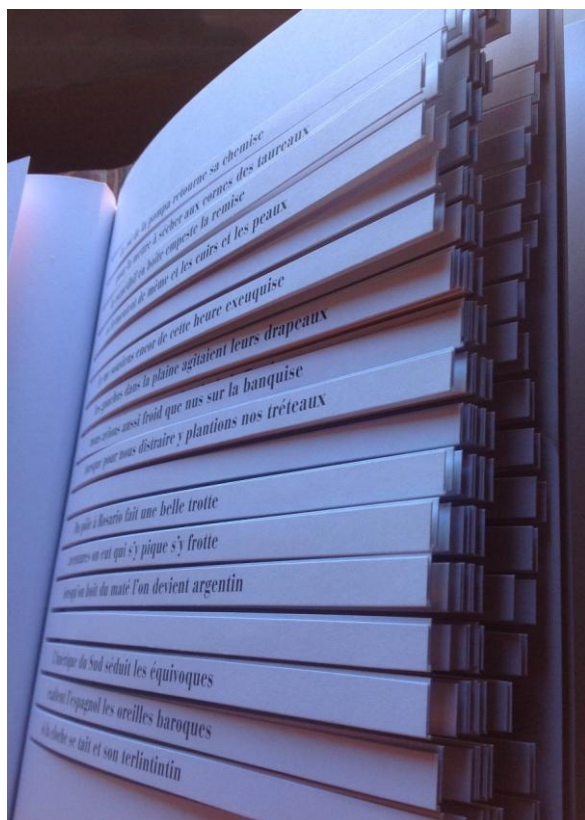 de la pampa retourne sa chemise
pour la mettre à sécher aux cornes des taureaux
en boîte empeste la remise
et de même et les cuirs et les peaux
me souviens encor de cette heure exeuquise
les gauchos dans la plaine agitaient leurs drapeaux
nous avions aussi froid que nus sur la banquise
lorsque pour nous distraire y plantions nos tréteaux
pôle à Rosario fait une belle trotte
on eut qui s'y pique s'y frotte
lorsqu'on boit du maté l'on devient argentin
du Sud séduit les équivoques
l'espagnol les oreilles baroques
si la cloche se tait et son terlintintin